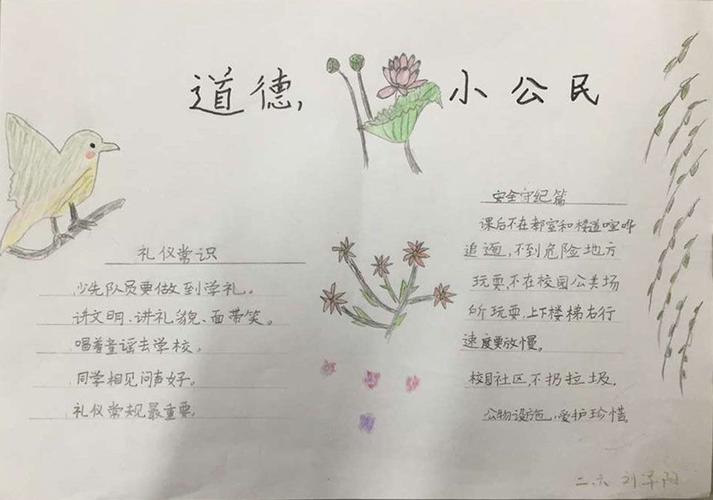 道德，小公民
礼仪常识
少先队员要做到学礼。
讲文明、讲礼貌、面带笑。
唱着童谣去学校。
同学相见问声好。
礼仪常规最重要。
安全守纪篇
课后不在教室和楼道喧哗
追逦，不到危险地方
玩耍不在校园公共场
所玩耍，上下楼梯右行
速度要放慢。
校园社区，不扔垃圾，
公物设施，爱护珍惜。
二.六 刘